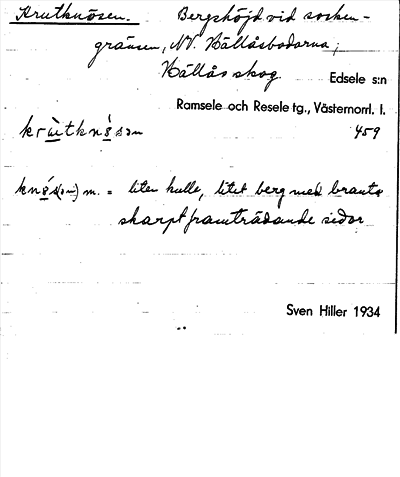 Krutknösen. Bergshöjd vid socken-
gränsen, NV. Hällåsbodarna,
Hällås skog. Edsele s:n
Ramsele och Resele tg., Västernorrl. l.
459
liten kulle, litet berg med branta
skarpt framträdande sidor
Sven Hiller 1934